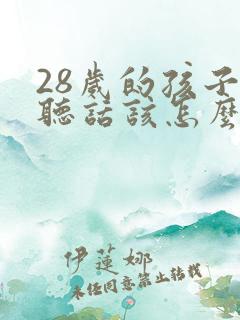 28歲的孩子
聽話該怎麼
伊蓮娜
未任同意禁止转载